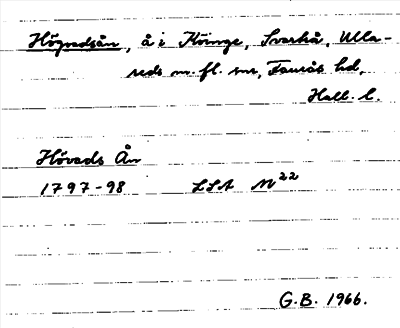 Högvadsån, å i Köinge, Svartrå, Ulla-
reds m. fl. snr, Faurås hd,
Hall. l.
Hövads Ån
1797-98 LSA N22
G.B. 1966.